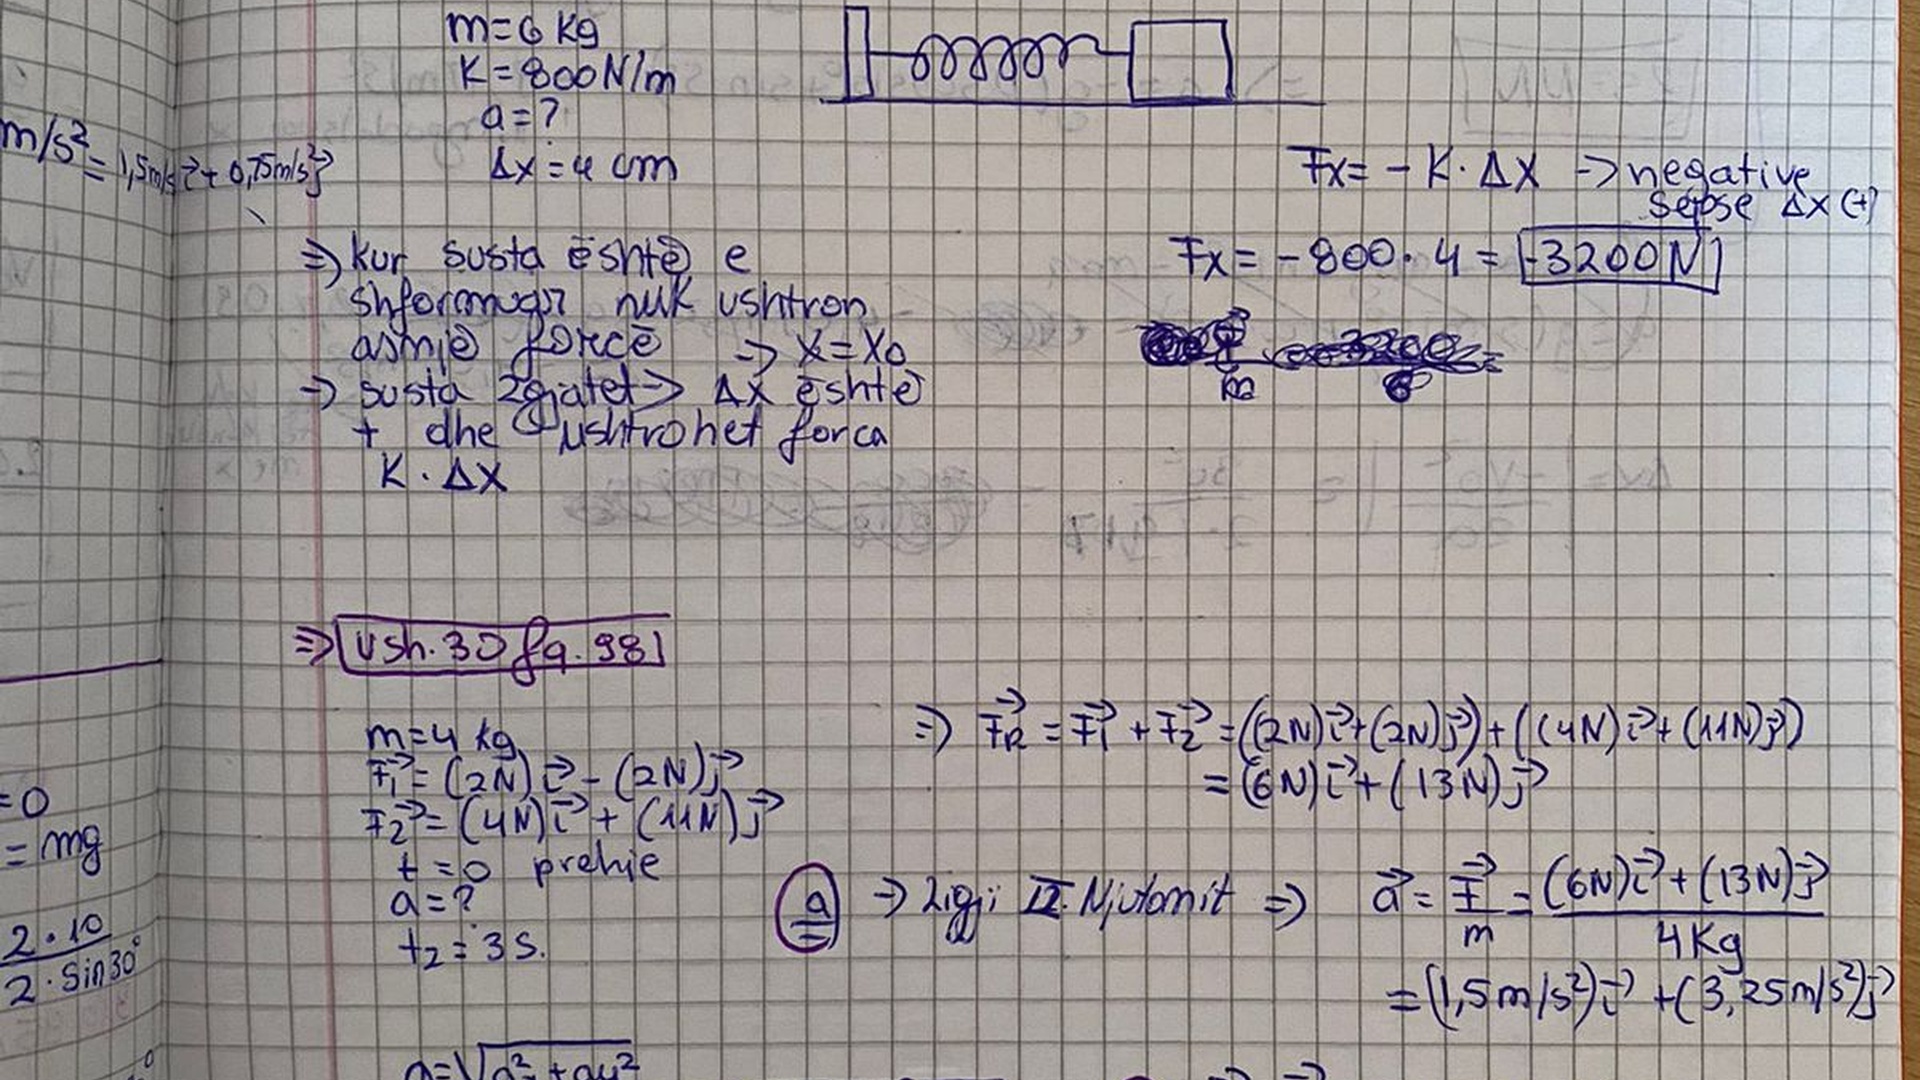 m=6 kg
K=800N/m
a=?
Δx=4 cm
m/s² = 1,5m/s i⃗ + 0,75m/s² j⃗
Fx= - K· Δx -> negative
sepse Δx (+)
Fx= -800·4 = -3200N
=> kur susta është e
shformuar nuk ushtron
asnjë forcë -> x=x₀
-> susta zgjatet -> Δx është
+ dhe ushtrohet forca
K · Δx
=> Ush.30 fq.98
m=4 kg
F₁⃗ = (2N)i⃗ - (2N)j⃗
F₂⃗ = (4N)i⃗ + (11N)j⃗
t=0 prehje
a=?
t₂=3s.
=> F⃗R = F₁⃗ + F₂⃗ = ((2N)i⃗+(2N)j⃗)+((4N)i⃗+(11N)j⃗)
= (6N)i⃗+(13N)j⃗
a -> Ligji II Njutonit => a⃗ = F⃗/m = (6N)i⃗+(13N)j⃗ / 4Kg
= (1,5m/s²)i⃗ +(3,25m/s²)j⃗
=0
= mg
2·10
2·Sin30°